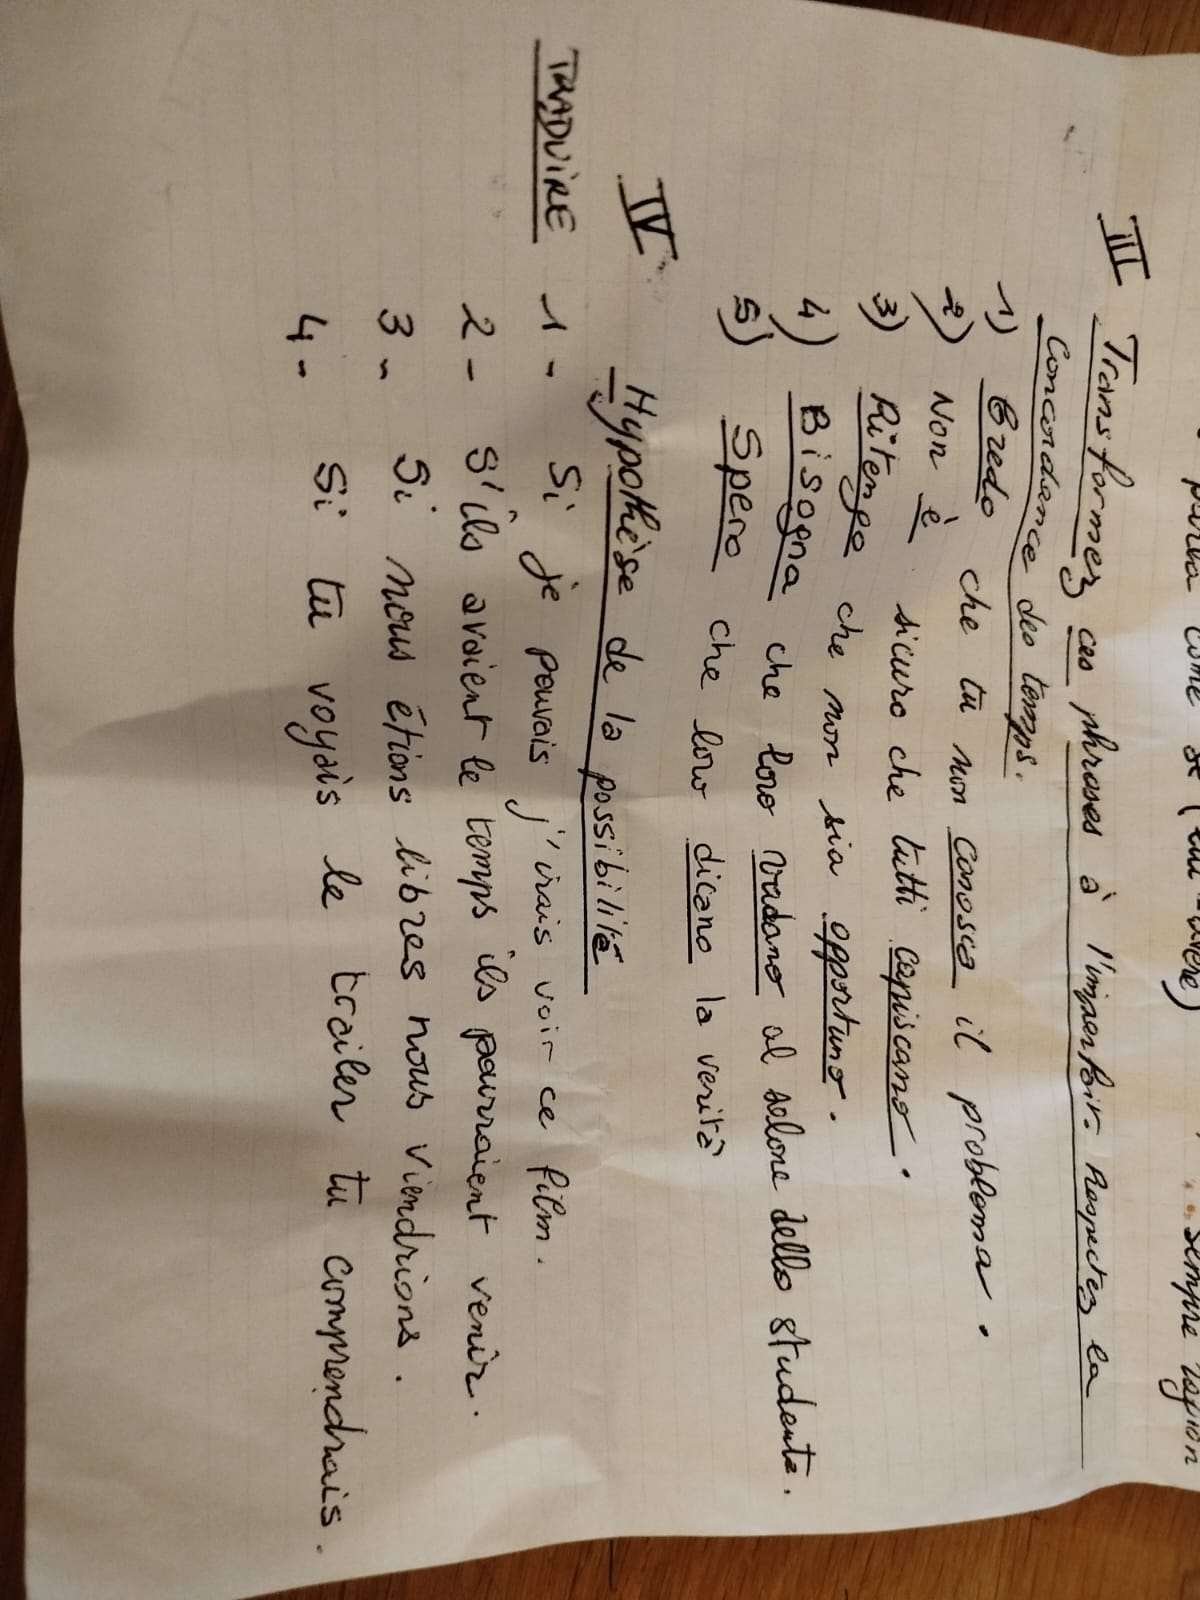 come se (
avere)
sempre
III Transformez ces phrases à l'imparfait. Respectez la
concordance des temps.
1) Credo che tu non conosca il problema.
2) Non è sicuro che tutti capiscano.
3) Ritengo che non sia opportuno.
4) Bisogna che loro vadano al salone dello studente.
5) Spero che loro dicano la verità
IV Hypothèse de la possibilité
TRADUIRE 1- Si je pouvais j'irais voir ce film.
2- S'ils avaient le temps ils pourraient venir.
3- Si nous étions libres nous viendrions.
4- Si tu voyais le trailer tu comprendrais.